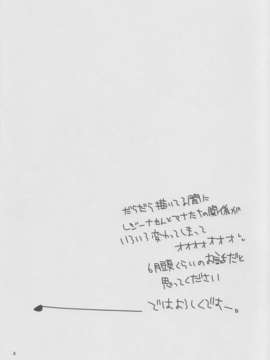 だらだら描いてる間に
レジーナさんとマナたちの関係が
いろいろ変わってしまって
オオオオオオオ。
6月頭くらいのお話だと
思ってください
ではよろしくですー。